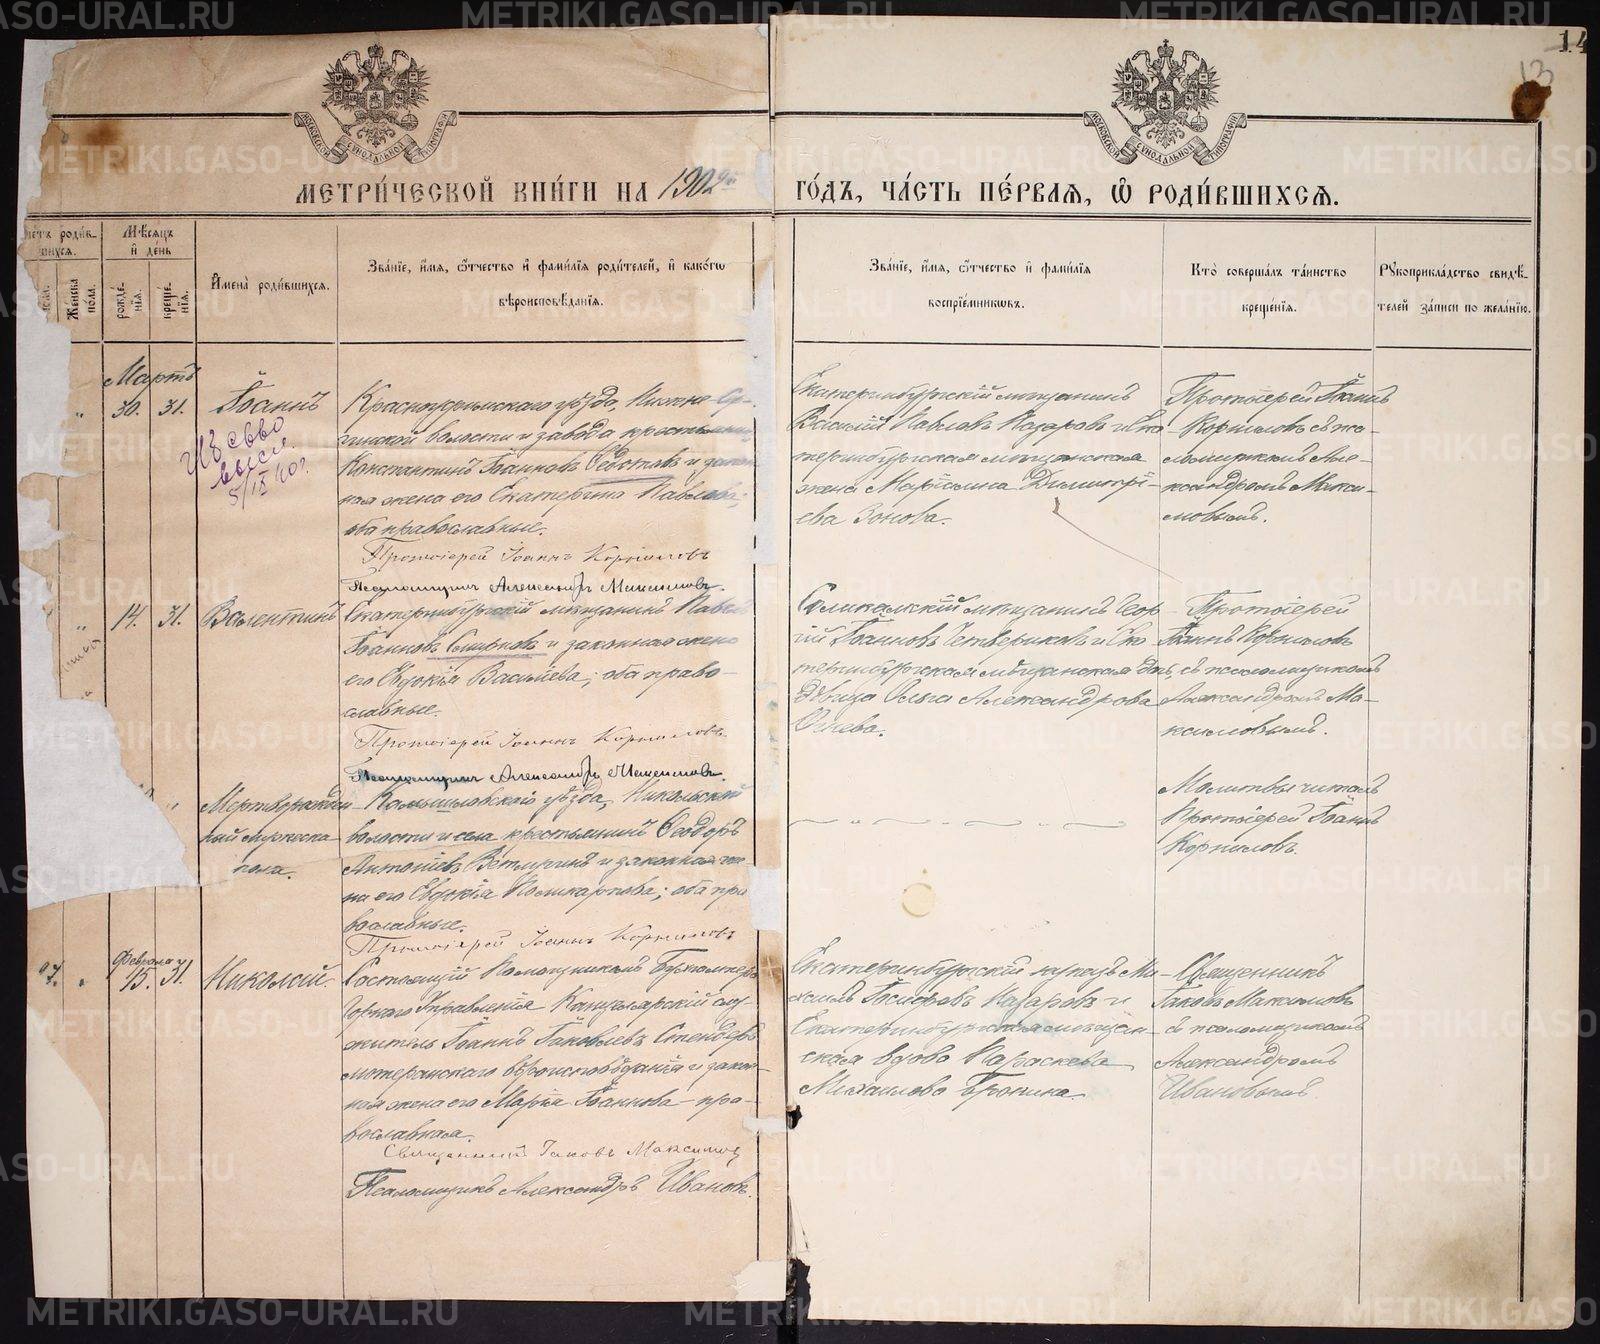 METRIKI.GASO-URAL.RU
14
13
МОСКОВСКОЙ СѴНОДАЛЬНОЙ ТИПОГРАФІИ
МОСКОВСКОЙ СѴНОДАЛЬНОЙ ТИПОГРАФІИ
МЕТРИ́ЧЕСКОЙ КНИ́ГИ НА 1902й ГО́ДЪ, ЧА́СТЬ ПЕ́РВАЯ, Ѡ҆ РОДИ́ВШИХСЯ.
родив-
шихся.
Мѣсяцъ
и день
Женска
пола.
рожде-
нія.
креще-
нія.
Имена родившихся.
Званіе, имя, ѻтчество и фамилія родителей, и какогѡ
вѣроисповѣданія.
Званіе, имя, ѻтчество и фамилія
воспріемникѡвъ.
Кто совершалъ таинство
крещенія.
Рукоприкладство свидѣ-
телей записи по желанію.
Мартъ
30. 31.
Іоаннъ
5/IX 40 г.
Красноуфимскаго уѣзда, Нижне-Сер-
гинской волости и завода крестьянинъ
Константинъ Іоанновъ Ѳедотовъ и закон-
ная жена его Екатерина Павлова;
оба православные.
Протоіерей Іоаннъ Корнилов
Псаломщик Александр Максимов.
Екатеринбургскій мѣщанинъ
Василій Павловъ Назаровъ и Ека-
теринбургская мѣщанская
жена Маріамна Димитрі-
ева Зонова.
Протоіерей Іоаннъ
Корниловъ съ пса-
ломщикомъ Але-
ксандромъ Макси-
мовымъ.
14. 31.
Валентинъ
Екатеринбургскій мѣщанинъ Павелъ
Іоанновъ Смирновъ и законная жена
его Евдокія Васильева; оба право-
славные.
Протоіерей Іоаннъ Корнилов.
Псаломщик Александр Максимов.
Соликамскій мѣщанинъ Геор-
гій Іоанновъ Четвериковъ и Ека-
теринбургская мѣщанская
дѣвица Ольга Александрова
Огнева.
Протоіерей
Іоаннъ Корниловъ
съ псаломщикомъ
Александромъ Ма-
ксимовымъ.
Мертворожден-
ный мужеска
пола.
Камышловскаго уѣзда, Никольской
волости и села крестьянинъ Ѳеодоръ
Антоніевъ Ветлугинъ и законная же-
на его Евдокія Поликарпова; оба пра-
вославные.
Протоіерей Іоаннъ Корнилов
Молитвы читалъ
Протоіерей Іоаннъ
Корниловъ.
Февраля
15. 31.
Николай.
Состоящій Помощникомъ Бухгалтера
Горнаго Управленія Канцелярскій слу-
житель Іоаннъ Іаковлевъ Стендеръ
лютеранскаго вѣроисповѣданія и закон-
ная жена его Марія Іоаннова – пра-
вославная.
Священник Іаков Максимов
Псаломщикъ Александръ Ивановъ.
Екатеринбургскій купецъ Ми-
хаилъ Іосифовъ Назаровъ и
Екатеринбургская мѣщан-
ская вдова Параскева
Михаилова Бронина.
Священникъ
Іаковъ Максимовъ
съ псаломщикомъ
Александромъ
Ивановымъ.